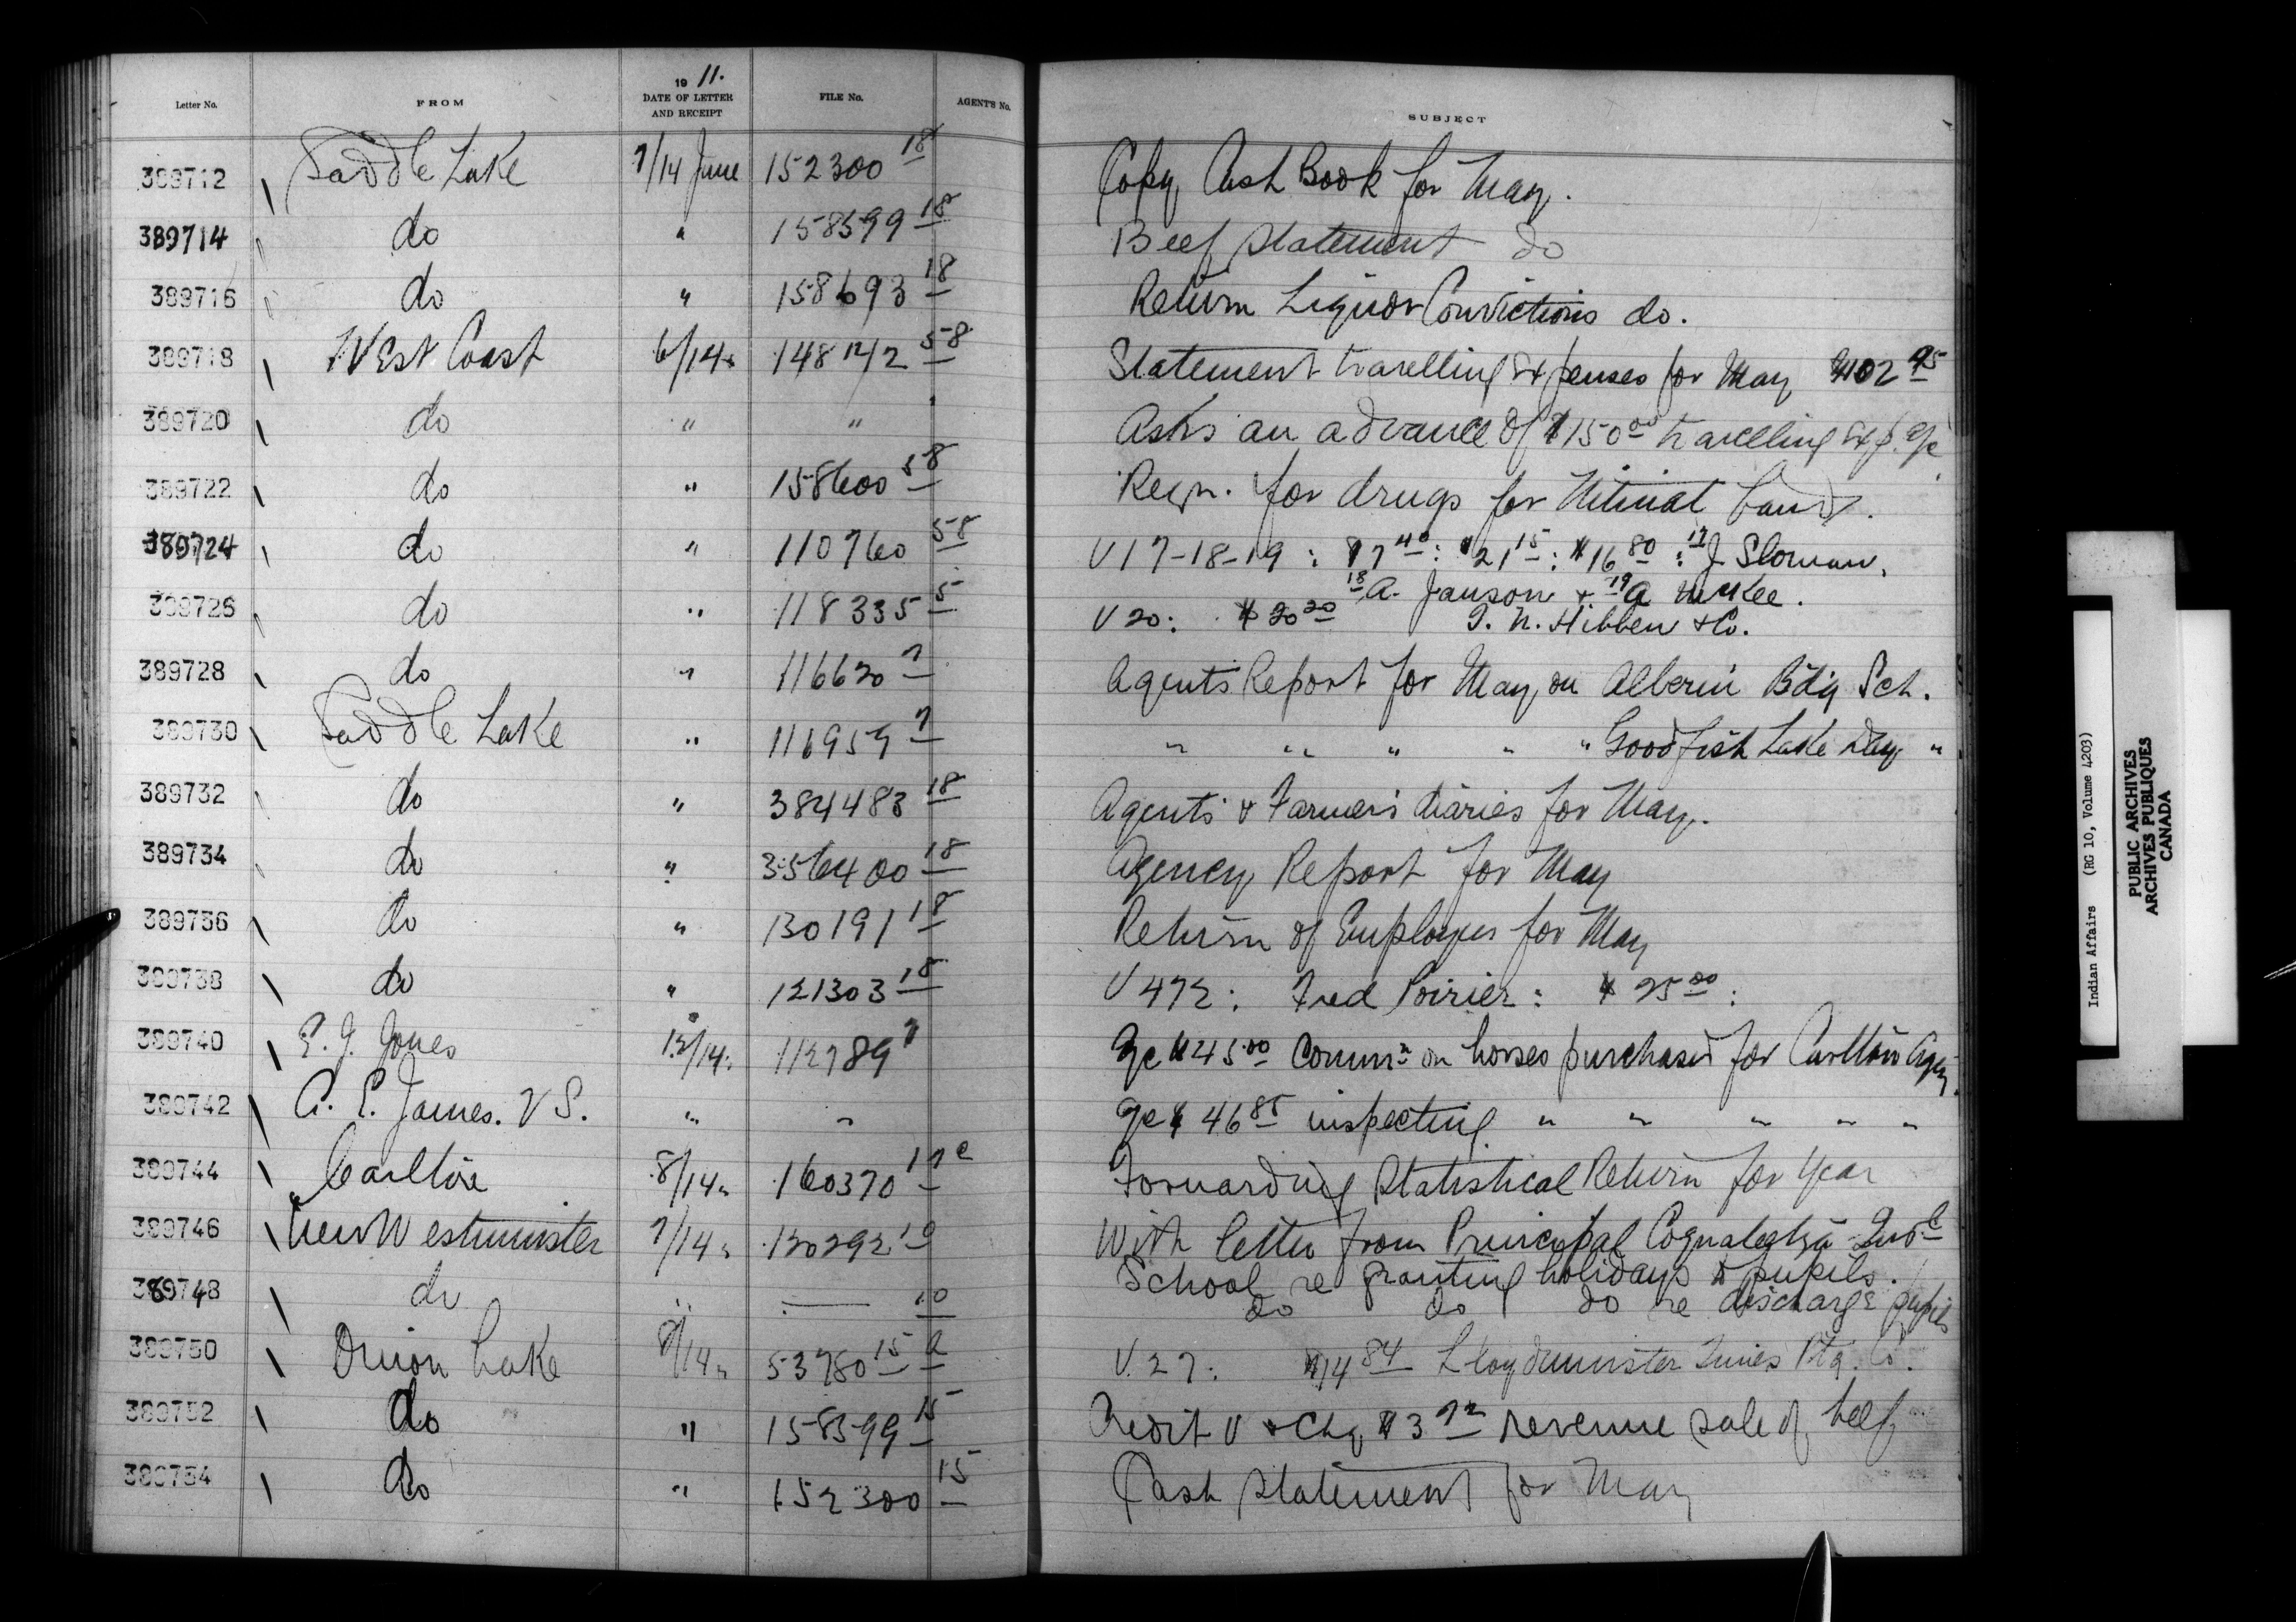 Letter No. FROM 19 11. DATE OF LETTER AND RECEIPT FILE No. AGENT'S No. SUBJECT
389712 Saddle Lake 7/14 June 152300 18 Copy Cash Book for May.
389714 do " 158599 18 Beef Statement do
389716 do " 158693 18 Return Liquor Convictions do.
389718 West Coast 6/14 " 148 12/2 58 Statement travelling Expenses for May $102 95
389720 do " " Asks an advance of $150 00 travelling Exp. a/c
389722 do " 158600 58 Reqn. for drugs for Nitinat band.
389724 do " 110760 58 V 17-18-19 : $7 40 : $21 15 : $16 80 : 17 J. Sloman,
18 A. Janson & 19 A McKee.
389726 do " 118335 5 V 20: $20 20 T. N. Hibben & Co.
389728 do " 116620 7 Agents Report for May, on Alberni Bdg Sch.
389730 Saddle Lake " 116959 7 " " " " " Goodfish Lake Day "
389732 do " 384483 18 Agents & Farmers diaries for May.
389734 do " 356400 18 Agency Report for May
389736 do " 130191 18 Return of Employees for May
389738 do " 121303 18 V 472: Fred Poirier: $25 00 :
389740 E. J. Jones 12/14 " 112789 7 a/c $45 00 Commn on horses purchased for Carlton Agcy.
389742 A. E. James. V S. " " a/c $46 85 inspecting " " " " "
389744 Carlton 8/14 " 160370 17 c Forwarding Statistical Return for Year
389746 New Westminster 7/14 " 120292 10 With letter from Principal Coqualeetza Indl
School re granting holidays to pupils.
389748 do " — 10 do do do re discharge pupils
389750 Onion Lake 8/14 " 53780 15 a V. 27: $14 84 Lloydminster Times Ptg. Co.
389752 do " 158599 15 Credit V & Chq $3 72 revenue sale of beef
389754 do " 152300 15 Cash Statement for May
Indian Affairs (RG 10, Volume 4203)
PUBLIC ARCHIVES
ARCHIVES PUBLIQUES
CANADA